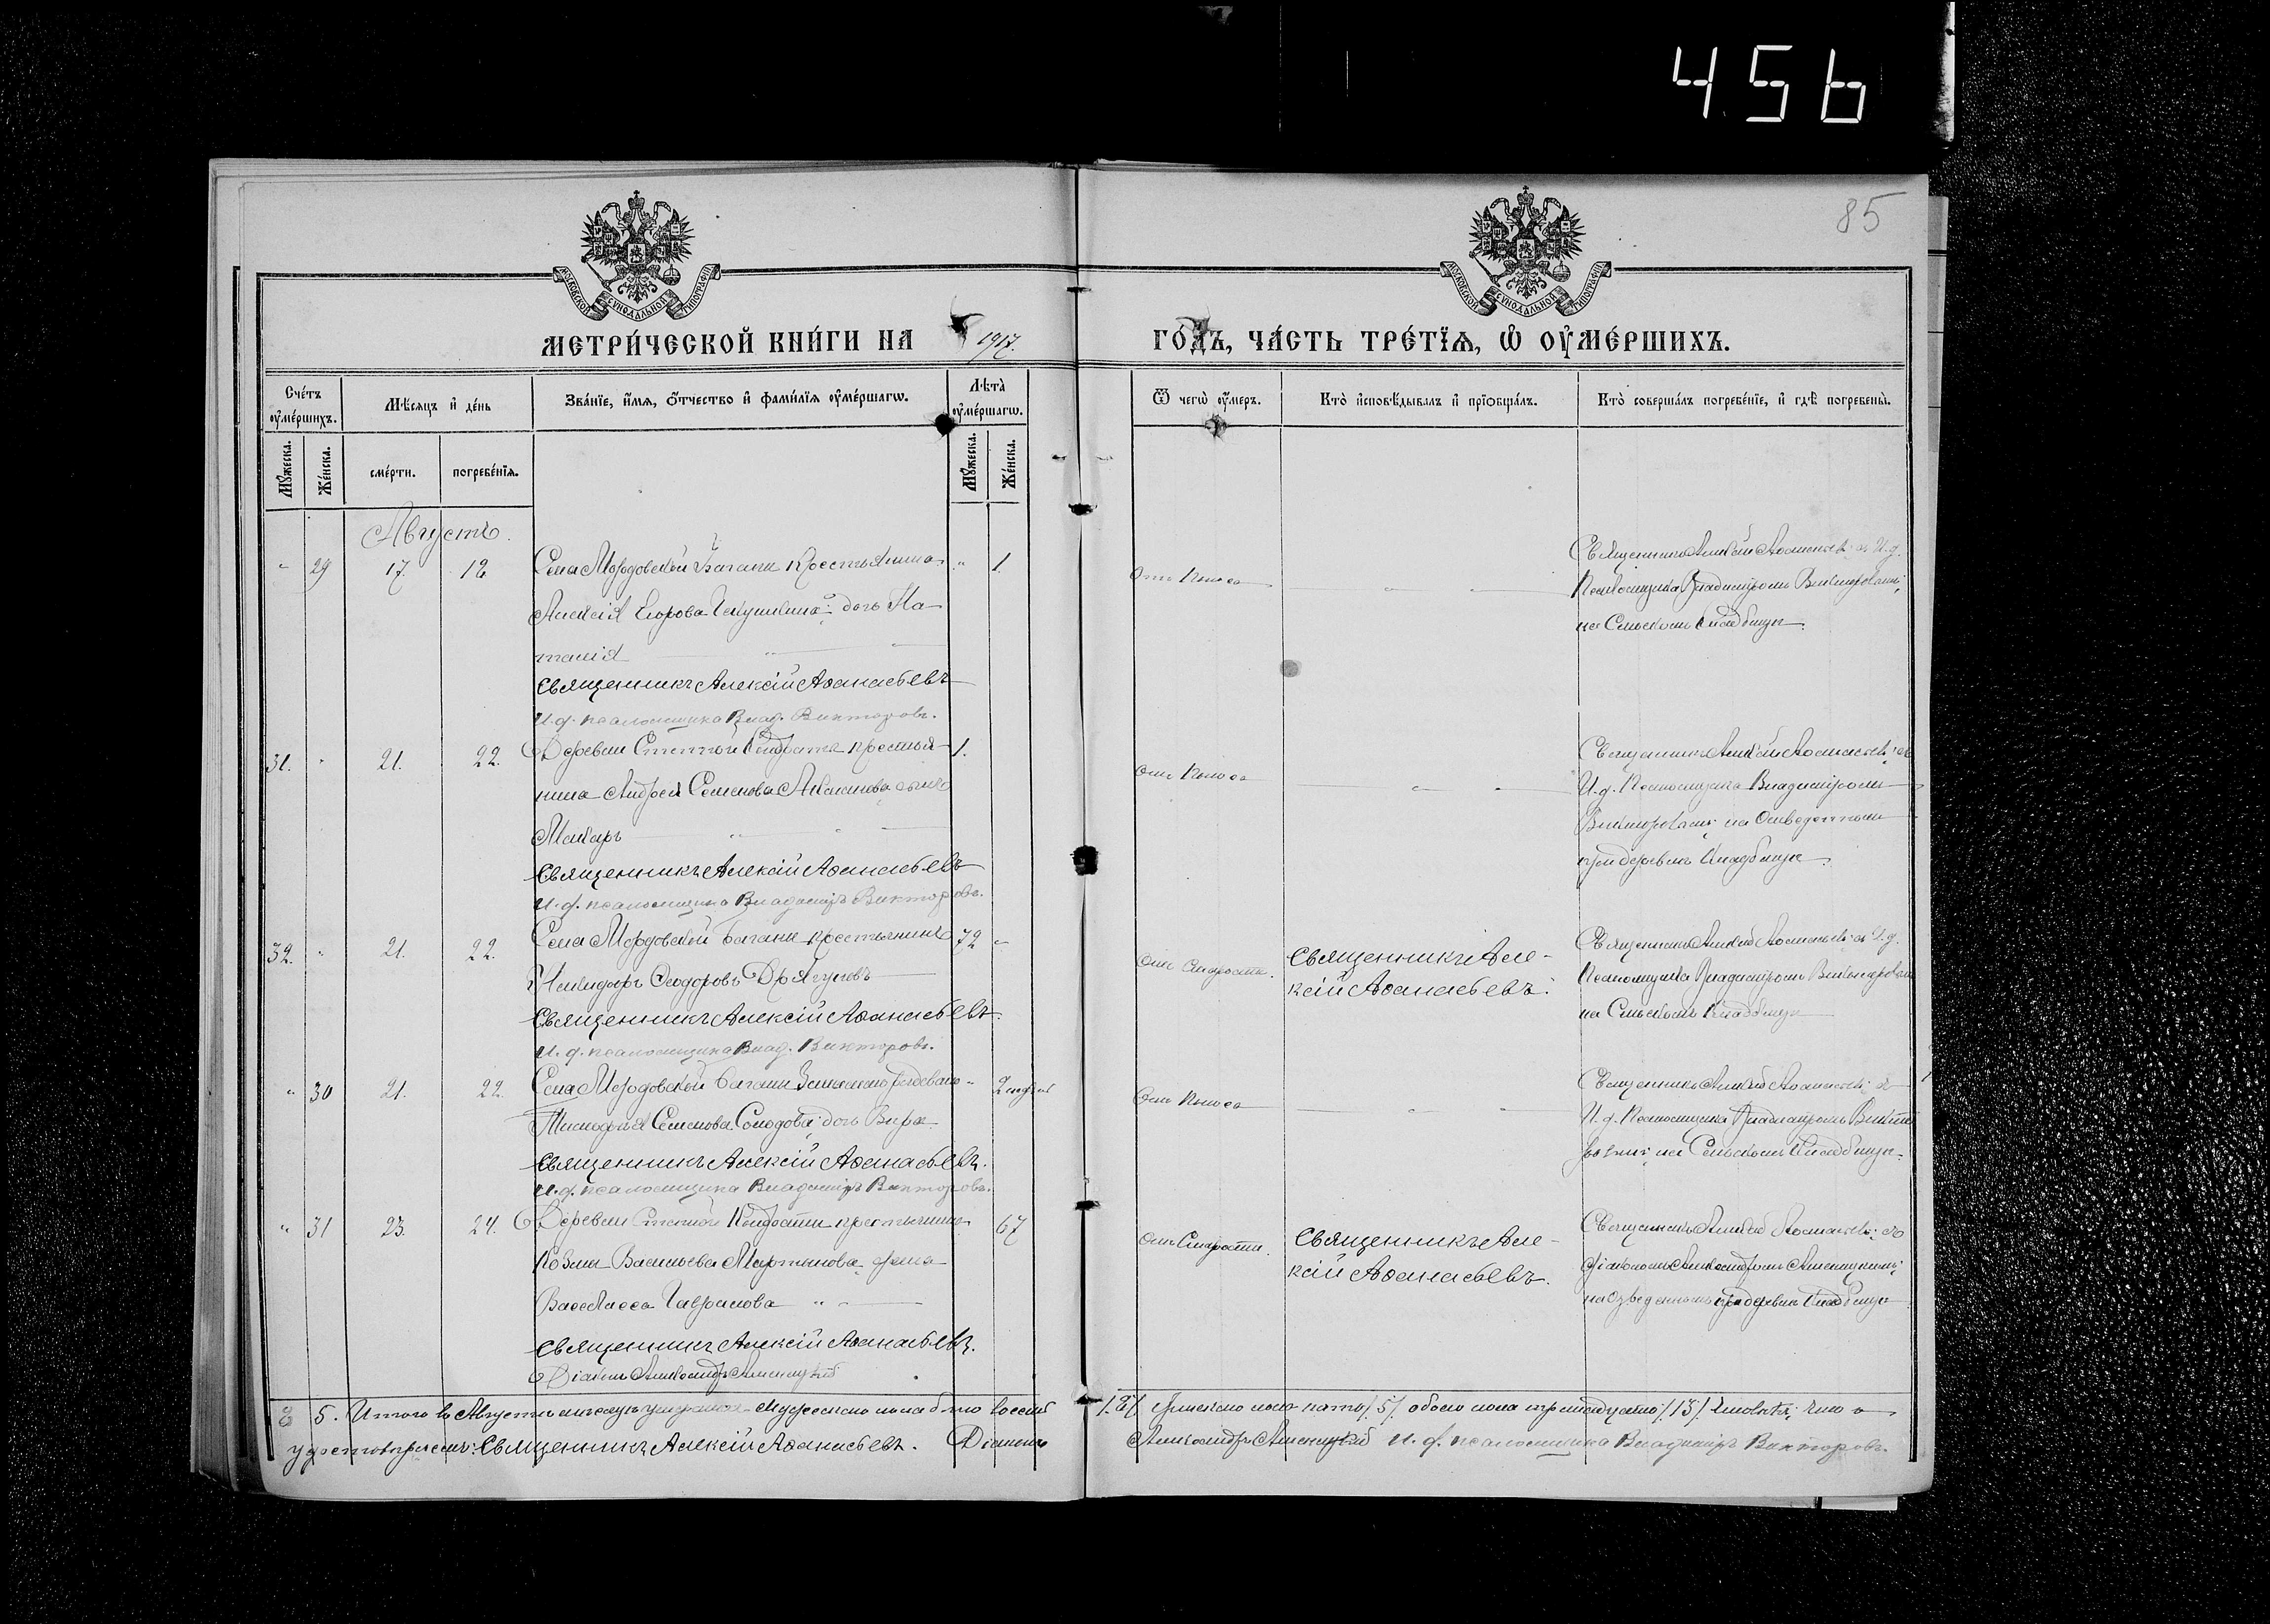 456
85
МОСКОВСКОЙ СѴНОДАЛЬНОЙ ТИПОГРАФІИ
МОСКОВСКОЙ СѴНОДАЛЬНОЙ ТИПОГРАФІИ
МЕТРИ́ЧЕСКОЙ КНИ́ГИ НА 1917. ГО́ДЪ, ЧА́СТЬ ТРЕ́ТЇѦ, Ѡ҆ ОУ҆МЕ́РШИХЪ.
Сче́тъ оу҆ме́ршихъ.
Мꙋ́жеска.
Же́нска.
Мѣ́сѧцъ и҆ де́нь
сме́рти.
погребе́нїѧ.
Зва́нїе, и҆́мѧ, ѻ҆́тчество и҆ фами́лїѧ оу҆ме́ршагѡ.
Лѣта̀ оу҆ме́ршагѡ.
Мꙋ́жеска.
Же́нска.
Ѿ чегѡ̀ оу҆́меръ.
Кто̀ и҆сповѣ́дывалъ и҆ прїѻбща́лъ.
Кто̀ соверша́лъ погребе́нїе, и҆ гдѣ̀ погребены̀.
Августъ.
" 29 17. 18 Села Мордовской Багани крестьянина " 1.
Алексія Егорова дочь На-
талія
Священникъ Алексій Аѳанасьевъ
И.д. псаломщика Влад. Викторовъ.
Отъ поноса
Священникъ Алексій Аѳанасьевъ съ И.д.
Псаломщика Владиміромъ Викторовымъ;
на Сельскомъ кладбищѣ.
31. " 21. 22. Деревни Степной Кондраты крестья- 1.
нина Андрея Семенова сынъ
Макаръ
Священникъ Алексій Аѳанасьевъ
И.д. псаломщика Владиміръ Викторовъ.
Отъ поноса
Священникъ Алексій Аѳанасьевъ съ
И.д. Псаломщика Владиміромъ
Викторовымъ; на Отведенномъ
при деревнѣ кладбищѣ.
32. " 21. 22. Села Мордовской Багани крестьянинъ 72 "
Никифоръ Ѳеодоровъ
Священникъ Алексій Аѳанасьевъ.
И.д. псаломщика Влад. Викторовъ.
Отъ старости.
Священникъ Але-
ксій Аѳанасьевъ.
Священникъ Алексій Аѳанасьевъ съ И.д.
Псаломщика Владиміромъ Викторовымъ
на Сельскомъ кладбищѣ
" 30 21. 22. Села Мордовской Багани " 2
Тимоѳея Семенова Солодова дочь Вѣра
Священникъ Алексій Аѳанасьевъ.
И.д. псаломщика Владиміръ Викторовъ.
Отъ поноса
Священникъ Алексій Аѳанасьевъ съ
И.д. Псаломщика Владиміромъ Викто-
ровымъ; на Сельскомъ кладбищѣ.
" 31 23. 24. Деревни Степной Кондраты крестьянина 67
Козмы Васильева Мартынова жена
Васса Гаврилова
Священникъ Алексій Аѳанасьевъ.
Діаконъ Александръ
Отъ старости.
Священникъ Але-
ксій Аѳанасьевъ.
Священникъ Алексій Аѳанасьевъ съ
діакономъ Александромъ
на Отведенномъ при деревнѣ кладбищѣ
8 5. Итого въ Августѣ мѣсяцѣ умершихъ Мужеска пола было восемь /8/ женска пола пять /5/ обоего пола тринадцать /13/ человѣкъ, что и
удостовѣряемъ: Священникъ Алексій Аѳанасьевъ. Діаконъ Александръ И.д. псаломщика Владиміръ Викторовъ.